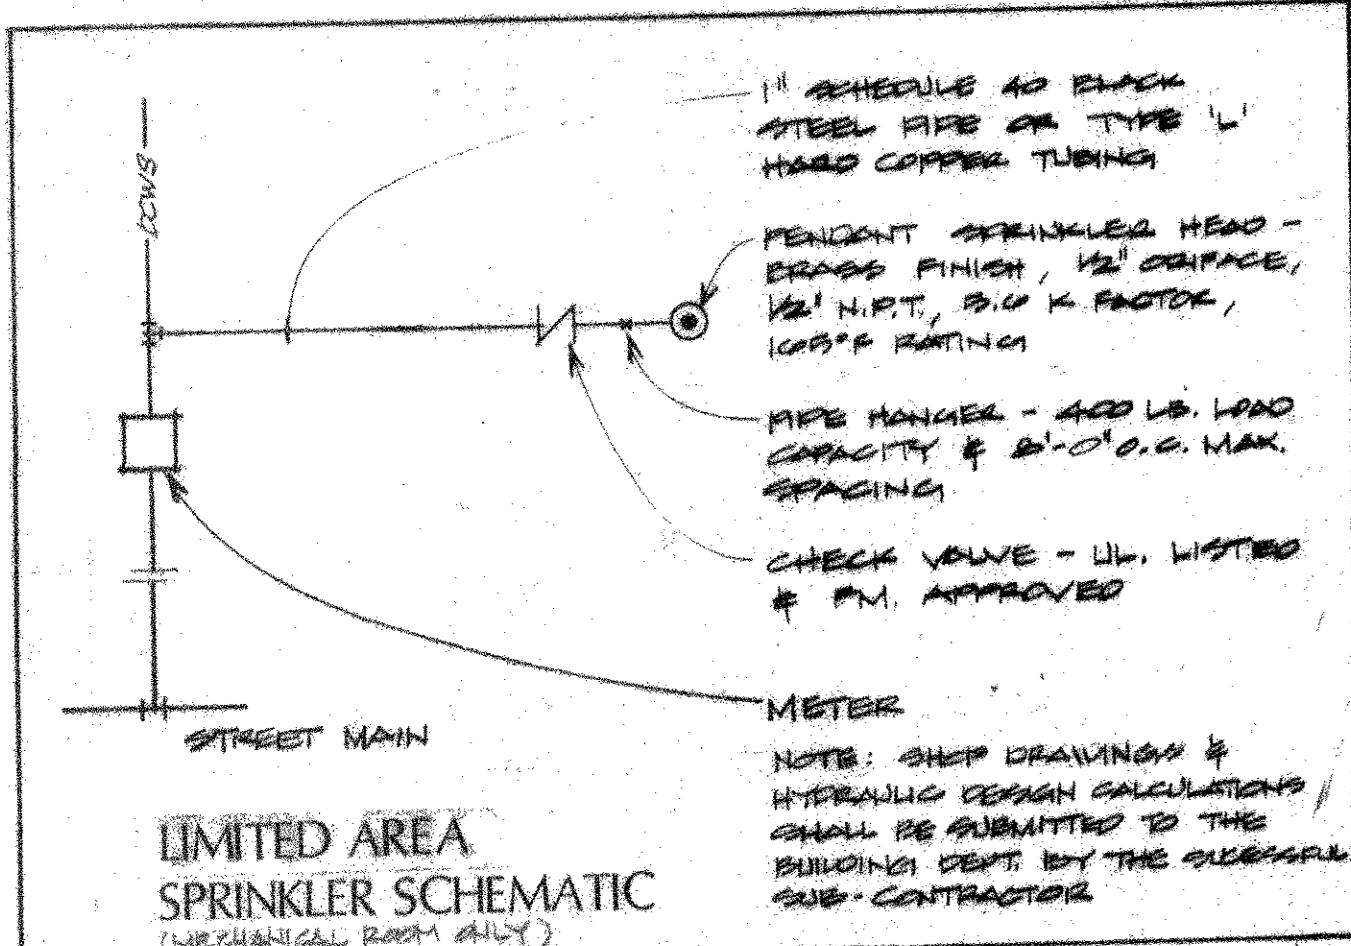 1" SCHEDULE 40 BLACK
STEEL PIPE OR TYPE 'L'
HARD COPPER TUBING
DCWS
PENDANT SPRINKLER HEAD -
BRASS FINISH, 1/2" ORIFACE,
1/2" N.P.T., 5.6 K FACTOR,
165°F RATING
PIPE HANGER - 400 LB. LOAD
CAPACITY & 8'-0" O.C. MAX.
SPACING
CHECK VALVE - UL. LISTED
& FM. APPROVED
METER
STREET MAIN
NOTE: SHOP DRAWINGS &
HYDRAULIC DESIGN CALCULATIONS
SHALL BE SUBMITTED TO THE
BUILDING DEPT. BY THE SUCESSFUL
SUB-CONTRACTOR
LIMITED AREA
SPRINKLER SCHEMATIC
(MECHANICAL ROOM ONLY)